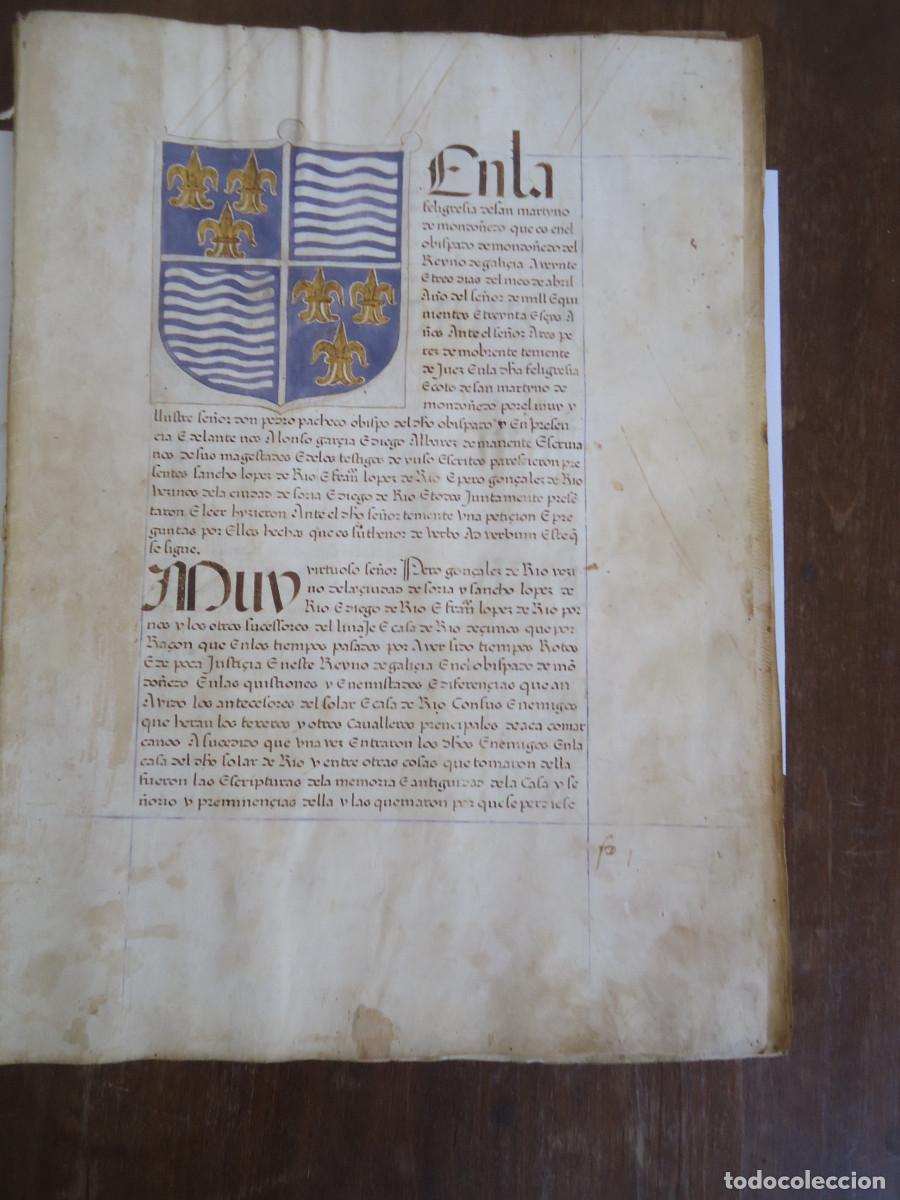 Enla
feligresia de san martyno
de mondoñedo que es enel
obispado de mondoñedo del
Reyno de galiçia A veynte
E tres dias del mes de abril
Año del señor de mill E qui
nientos E treynta E seys A
ños Ante el señor Ares pe
rez de mobrente teniente
de Juez Enla dha feligresia
E coto de san martyno de
mondoñedo por el muy y
llustre señor don pedro pacheco obispo del dho obispado y En presen
cia E delante nos Alonso garçia E diego Albarez de manente Escriua
nos de sus magestades E delos testigos de yuso Escritos paresçieron pre
sentes sancho lopez de Rio E fram lopez de Rio E pero gonçalez de Rio
vezinos dela ciudad de soria E diego de Rio E todos Juntamente prese
taron E leer hyzieron Ante el dho señor teniente vna petiçion E pre
guntas por Ellos hechas que es su thenor de verbo Ad verbum Este q
se sigue.
Muy virtuoso señor Pero gonçalez de Rio vezi
no dela çiudad de soria y sancho lopez de
Rio E diego de Rio E fram lopez de Rio por
nos y los otros sucessores del linaJe E casa de Rio deçimos que por
Raçon que Enlos tiempos pasados por Aver sido tiempos Rotos
E de poca Justiçia En este Reyno de galiçia En el obispado de mo
doñedo Enlas quistiones y Enemistades E diferençias que an
Avido los anteçesores del solar E casa de Rio Con sus Enemigos
que heran los texeros y otros Cavalleros prencipales de aca comar
canos A suçedido que vna vez Entraron los dhos Enemigos Enla
casa del dho solar de Rio y entre otras cosas que tomaron della
fueron las Escripturas dela memoria E antiguedad dela Casa y se
ñorio y preminençias della y las quemaron por que se perdiese
todocoleccion